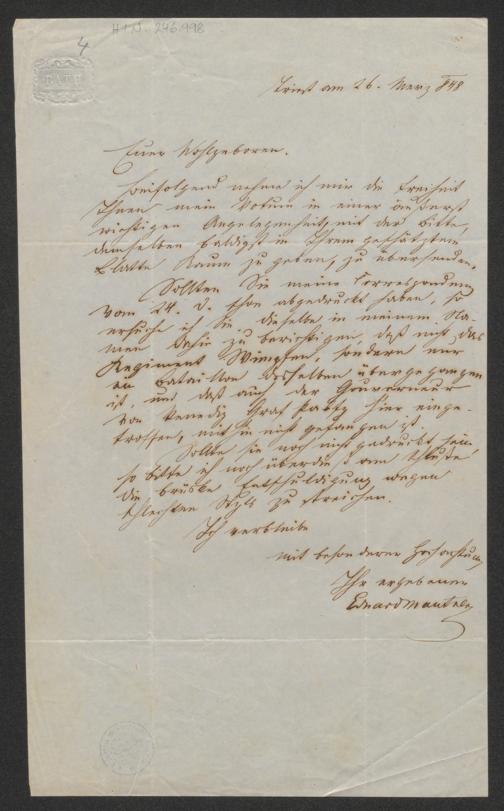 H.I.N. 246.998
4
BATH
Triest am 26. Merz 848
Euer Wohlgeboren.
Beifolgend nehme ich mir die Freiheit
Ihnen mein Votum in einer äußerst
wichtigen Angelegenheit, mit der Bitte,
demselben baldigst in Ihrem geschätzten
Blatte Raum zu geben, zu übersenden.
Sollten Sie meine Correspondenz
vom 24. d. schon abgedruckt haben, so
ersuche ich Sie dieselbe in meinem Na-
men dahin zu berichtigen, daß nicht das
Regiment Wimpfen, sondern nur
ein Bataillon desselben übergegangen
ist, und daß auch der Gouverneur
von Venedig Graf Palffy hier einge-
troffen, mithin nicht gefangen ist.
Sollte sie noch nicht gedruckt sein,
so bitte ich noch überdieß am Schluße
die brüske Entschuldigung wegen
schlechten Styls zu streichen.
Ich verbleibe
mit besonderer Hochachtung
Ihr ergebener
Eduard